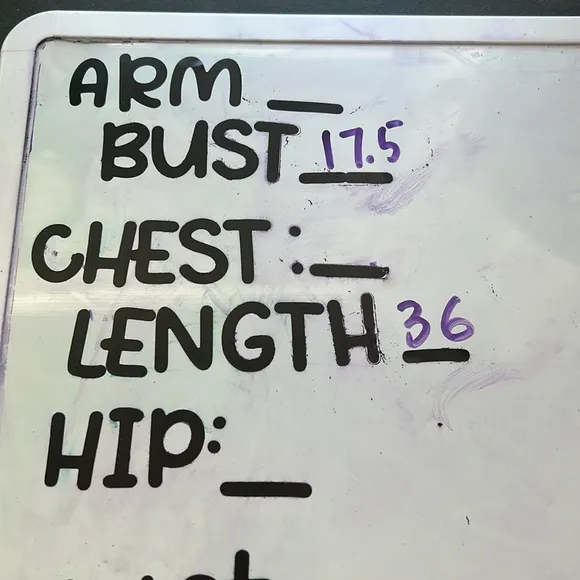 ARM __
BUST 17.5
CHEST: __
LENGTH 36
HIP: __